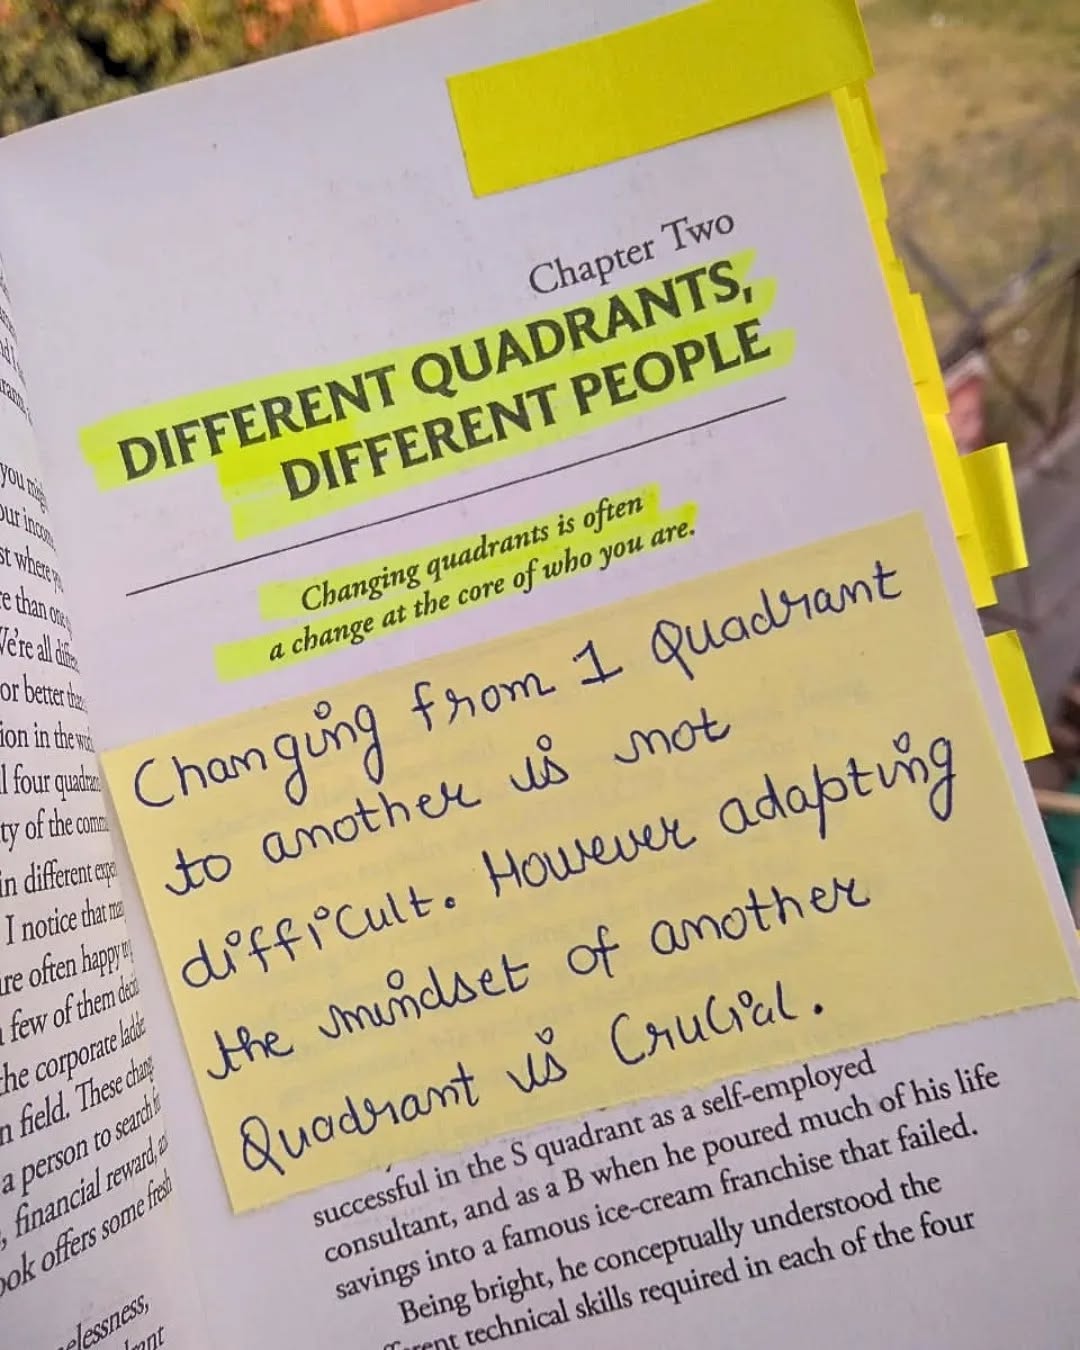 Chapter Two
DIFFERENT QUADRANTS,
DIFFERENT PEOPLE
Changing quadrants is often
a change at the core of who you are.
Changing from 1 Quadrant
to another is not
difficult. However adapting
the mindset of another
Quadrant is Crucial.
successful in the S quadrant as a self-employed
consultant, and as a B when he poured much of his life
savings into a famous ice-cream franchise that failed.
Being bright, he conceptually understood the
technical skills required in each of the four
you
st where
re than one
We're all
or better
ion in the
l four
ty of the
in different
I notice that
are often happy
few of them
the corporate
n field. These
a person to search
, financial reward,
ook offers some fresh